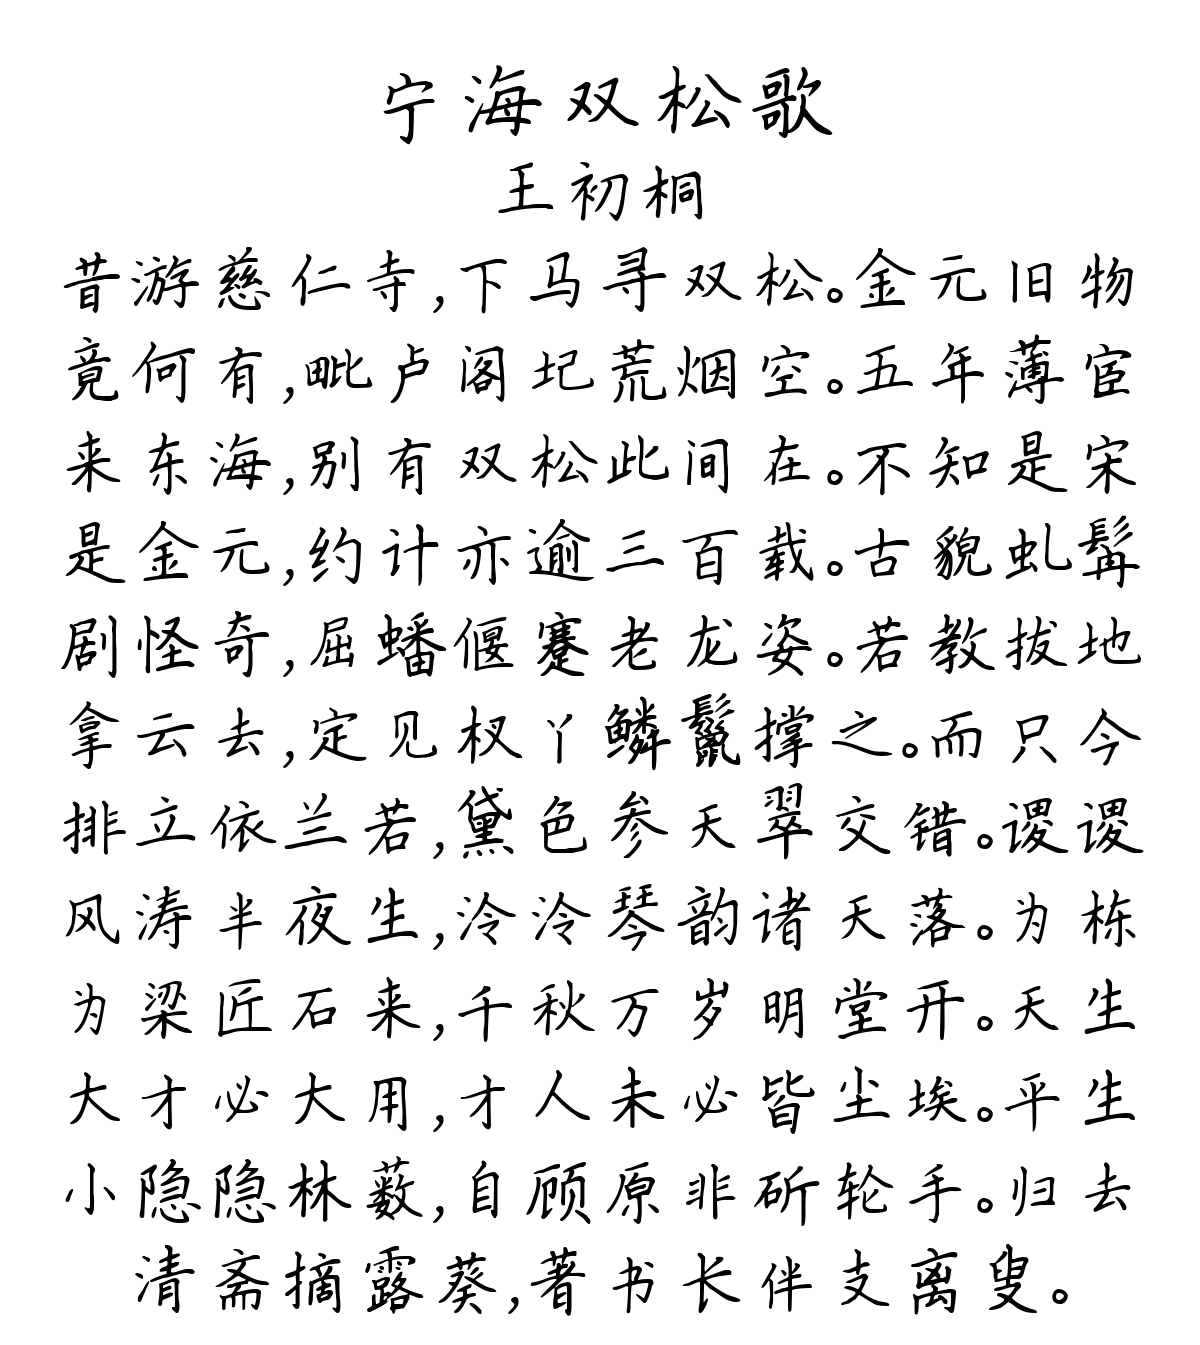 宁海双松歌
王初桐
昔游慈仁寺,下马寻双松。金元旧物
竟何有,毗卢阁圮荒烟空。五年薄宦
来东海,别有双松此间在。不知是宋
是金元,约计亦逾三百载。古貌虬髯
剧怪奇,屈蟠偃蹇老龙姿。若教拔地
拿云去,定见杈丫鳞鬣撑之。而只今
排立依兰若,黛色参天翠交错。谡谡
风涛半夜生,泠泠琴韵诸天落。为栋
为梁匠石来,千秋万岁明堂开。天生
大才必大用,才人未必皆尘埃。平生
小隐隐林薮,自顾原非斫轮手。归去
清斋摘露葵,著书长伴支离叟。